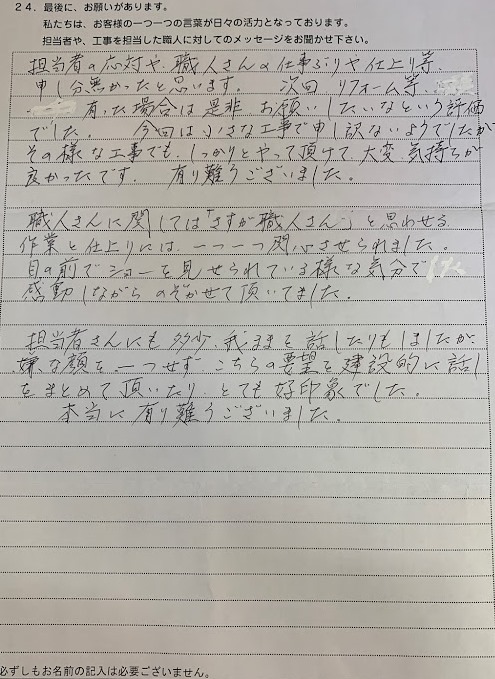 24. 最後に、お願いがあります。
私たちは、お客様の一つ一つの言葉が日々の活力となっております。
担当者や、工事を担当した職人に対してのメッセージをお聞かせ下さい。
担当者の応対や、職人さんの仕事ぶりや仕上り等、
申し分無かったと思います。 次回 リフォーム等、
有った場合は是非 お願いしたいなという評価
でした。 今回は小さな工事で申し訳ないようでしたが
その様な工事でも、しっかりとやって頂けて、大変 気持ちが
良かったです。 有り難うございました。
職人さんに関しては「さすが職人さん」と思わせる
作業と仕上りには、一つ一つ関心させられました。
目の前でショーを見せられている様な気分でした
感動しながら のぞかせて頂いてました。
担当者さんにも 多少、我ままを話したりもしましたが、
嫌な顔を、一つせず、こちらの要望を建設的に話し
をまとめて頂いたり、とても好印象でした。
本当に有り難うございました。
必ずしもお名前の記入は必要ございません。